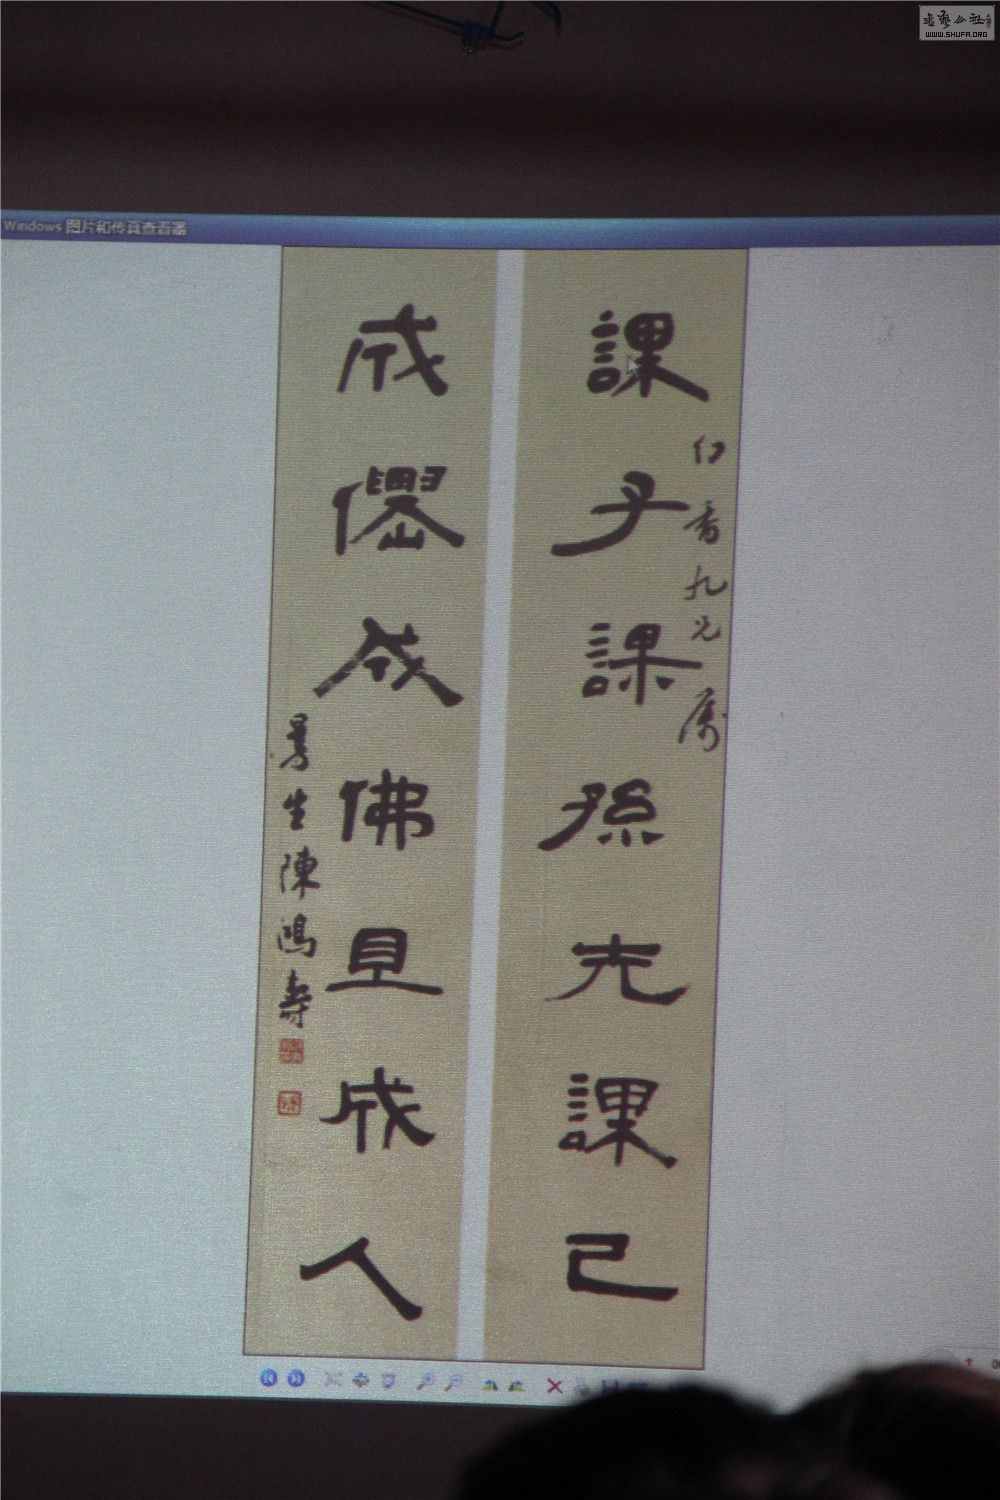 書藝公社
WWW.SHUFA.ORG
Windows 图片和传真查看器
課子課孫先課己
幻香九兄屬
成僊成佛且成人
曼生陳鴻壽